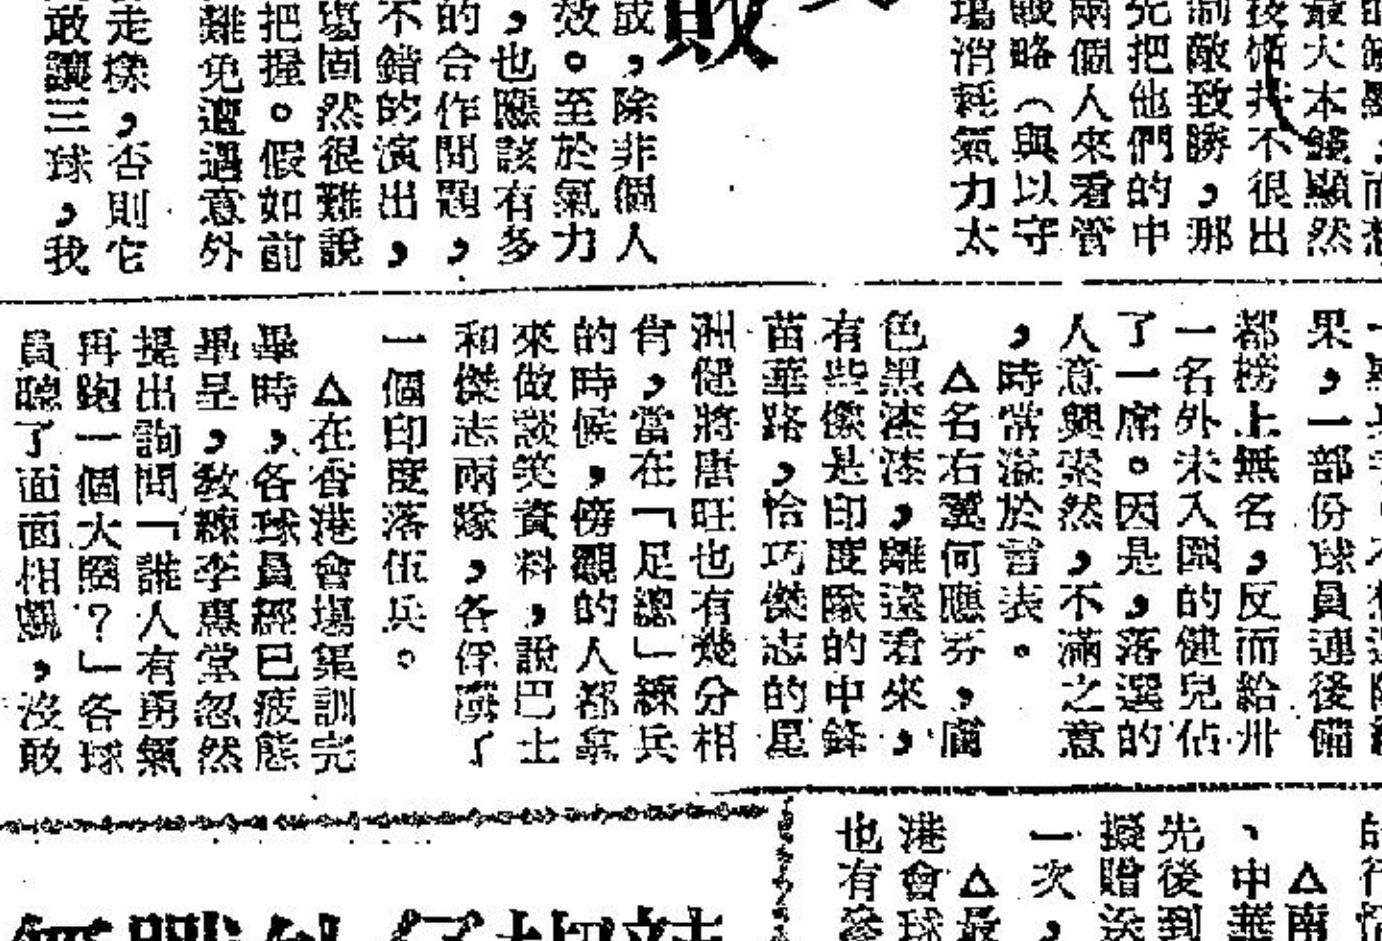 的
最大本錢顯然
技術并不很出
制敵致勝，那
先把他們的中
兩個人來看管
戰略（與以守
場消耗氣力太
敗
成，除非個人
效。至於氣力
，也應該有多
的合作問題，
不錯的演出，
場固然很難說
把握。假如前
難免遭遇意外
走樣，否則它
敢讓三球，我
果，一部份球員連後備
都榜上無名，反而給卅
一名外未入圍的健兒佔
了一席。因是，落選的
人意興索然，不滿之意
，時常溢於言表。
△名右翼何應芬，膚
色黑漆漆，離遠看來，
有些像是印度隊的中鋒
苗華路，恰巧傑志的星
洲健將唐旺也有幾分相
肖，當在「足總」練兵
的時候，傍觀的人都拿
來做談笑資料，說巴士
和傑志兩隊，各俘擄了
一個印度落伍兵。
△在香港會場集訓完
畢時，各球員經已疲態
畢呈，教練李惠堂忽然
提出詢問「誰人有勇氣
再跑一個大圈？」各球
員聽了面面相覷，沒敢
的行
△南
、中華
先後到
擬贈送
一次，
△最
港會球
也有參